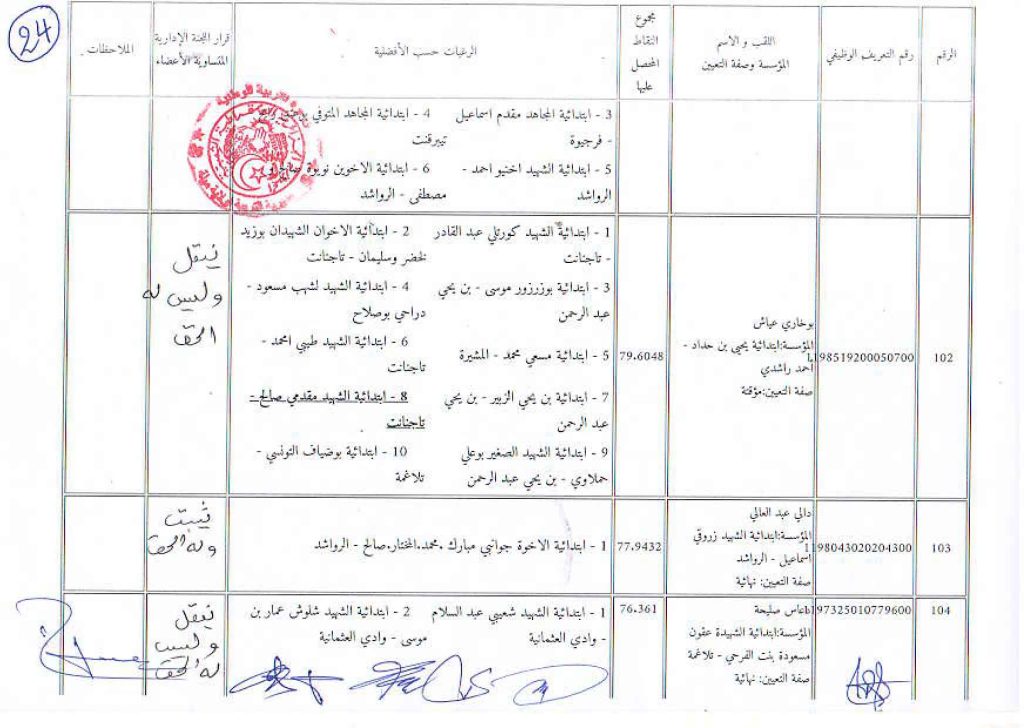 24
الرقم
رقم التعريف الوظيفي
اللقب و الاسم
المؤسسة وصفة التعيين
مجموع
النقاط
المحصل
عليها
الرغبات حسب الأفضلية
قرار اللجنة الإدارية
المتساوية الأعضاء
الملاحظات
3 - ابتدائية المجاهد مقدم اسماعيل
- فرجيوة
4 - ابتدائية المجاهد المتوفي
تيبرقنت
5 - ابتدائية الشهيد اخنيو احمد -
الرواشد
6 - ابتدائية الاخوين نويوة صالح و
مصطفى - الرواشد
102
198519200050700
بوخاري عياش
المؤسسة:ابتدائية يحيى بن حداد -
احمد راشدي
صفة التعيين:مؤقتة
79.6048
1 - ابتدائية الشهيد كورتلي عبد القادر
- تاجنانت
2 - ابتدائية الاخوان الشهيدان بوزيد
لخضر وسليمان - تاجنانت
3 - ابتدائية بوزرزور موسى - بن يحي
عبد الرحمن
4 - ابتدائية الشهيد لشهب مسعود -
دراحي بوصلاح
5 - ابتدائية مسعي محمد - المشيرة
6 - ابتدائية الشهيد طيبي امحمد -
تاجنانت
7 - ابتدائية بن يحي الزبير - بن يحي
عبد الرحمن
8 - ابتدائية الشهيد مقدمي صالح -
تاجنانت
9 - ابتدائية الشهيد الصغير بوعلي
حملاوي - بن يحي عبد الرحمن
10 - ابتدائية بوضياف التونسي -
تلاغمة
ينقل
وليس له
الحق
103
198043020204300
دالي عبد العالي
المؤسسة:ابتدائية الشهيد زروقي
اسماعيل - الرواشد
صفة التعيين: نهائية
77.9432
1 - ابتدائية الاخوة جوانبي مبارك .محمد.المختار.صالح - الرواشد
يثبت
وله الحق
104
197325010779600
لعاس صليحة
المؤسسة:ابتدائية الشهيدة عقون
مسعودة بنت الفرحي - تلاغمة
صفة التعيين: نهائية
76.361
1 - ابتدائية الشهيد شعيبي عبد السلام
- وادي العثمانية
2 - ابتدائية الشهيد شلوش عمار بن
موسى - وادي العثمانية
ينقل
وليس
له الحق